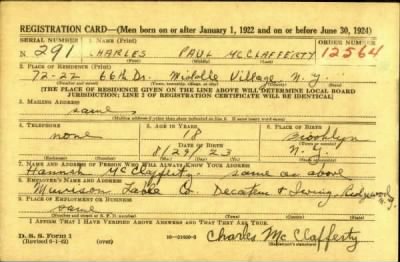 REGISTRATION CARD—(Men born on or after January 1, 1922 and on or before June 30, 1924)
SERIAL NUMBER 1. NAME (Print) ORDER NUMBER
N 291 CHARLES PAUL McCLAFFERTY 12564
2. PLACE OF RESIDENCE (Print)
72-22 66th Dr. Middle Village, N.Y.
[THE PLACE OF RESIDENCE GIVEN ON THE LINE ABOVE WILL DETERMINE LOCAL BOARD
JURISDICTION; LINE 2 OF REGISTRATION CERTIFICATE WILL BE IDENTICAL]
3. MAILING ADDRESS
same
4. TELEPHONE 5. AGE IN YEARS 6. PLACE OF BIRTH
none 18 Brooklyn
DATE OF BIRTH
8/29/23 N.Y.
7. NAME AND ADDRESS OF PERSON WHO WILL ALWAYS KNOW YOUR ADDRESS
Hannah McClafferty same as above
8. EMPLOYER'S NAME AND ADDRESS
Co. Decatur & Irving, Ridgewood N.Y.
9. PLACE OF EMPLOYMENT OR BUSINESS
same
I AFFIRM THAT I HAVE VERIFIED ABOVE ANSWERS AND THAT THEY ARE TRUE.
D. S. S. Form 1
(Revised 6-1-42)
Charles McClafferty